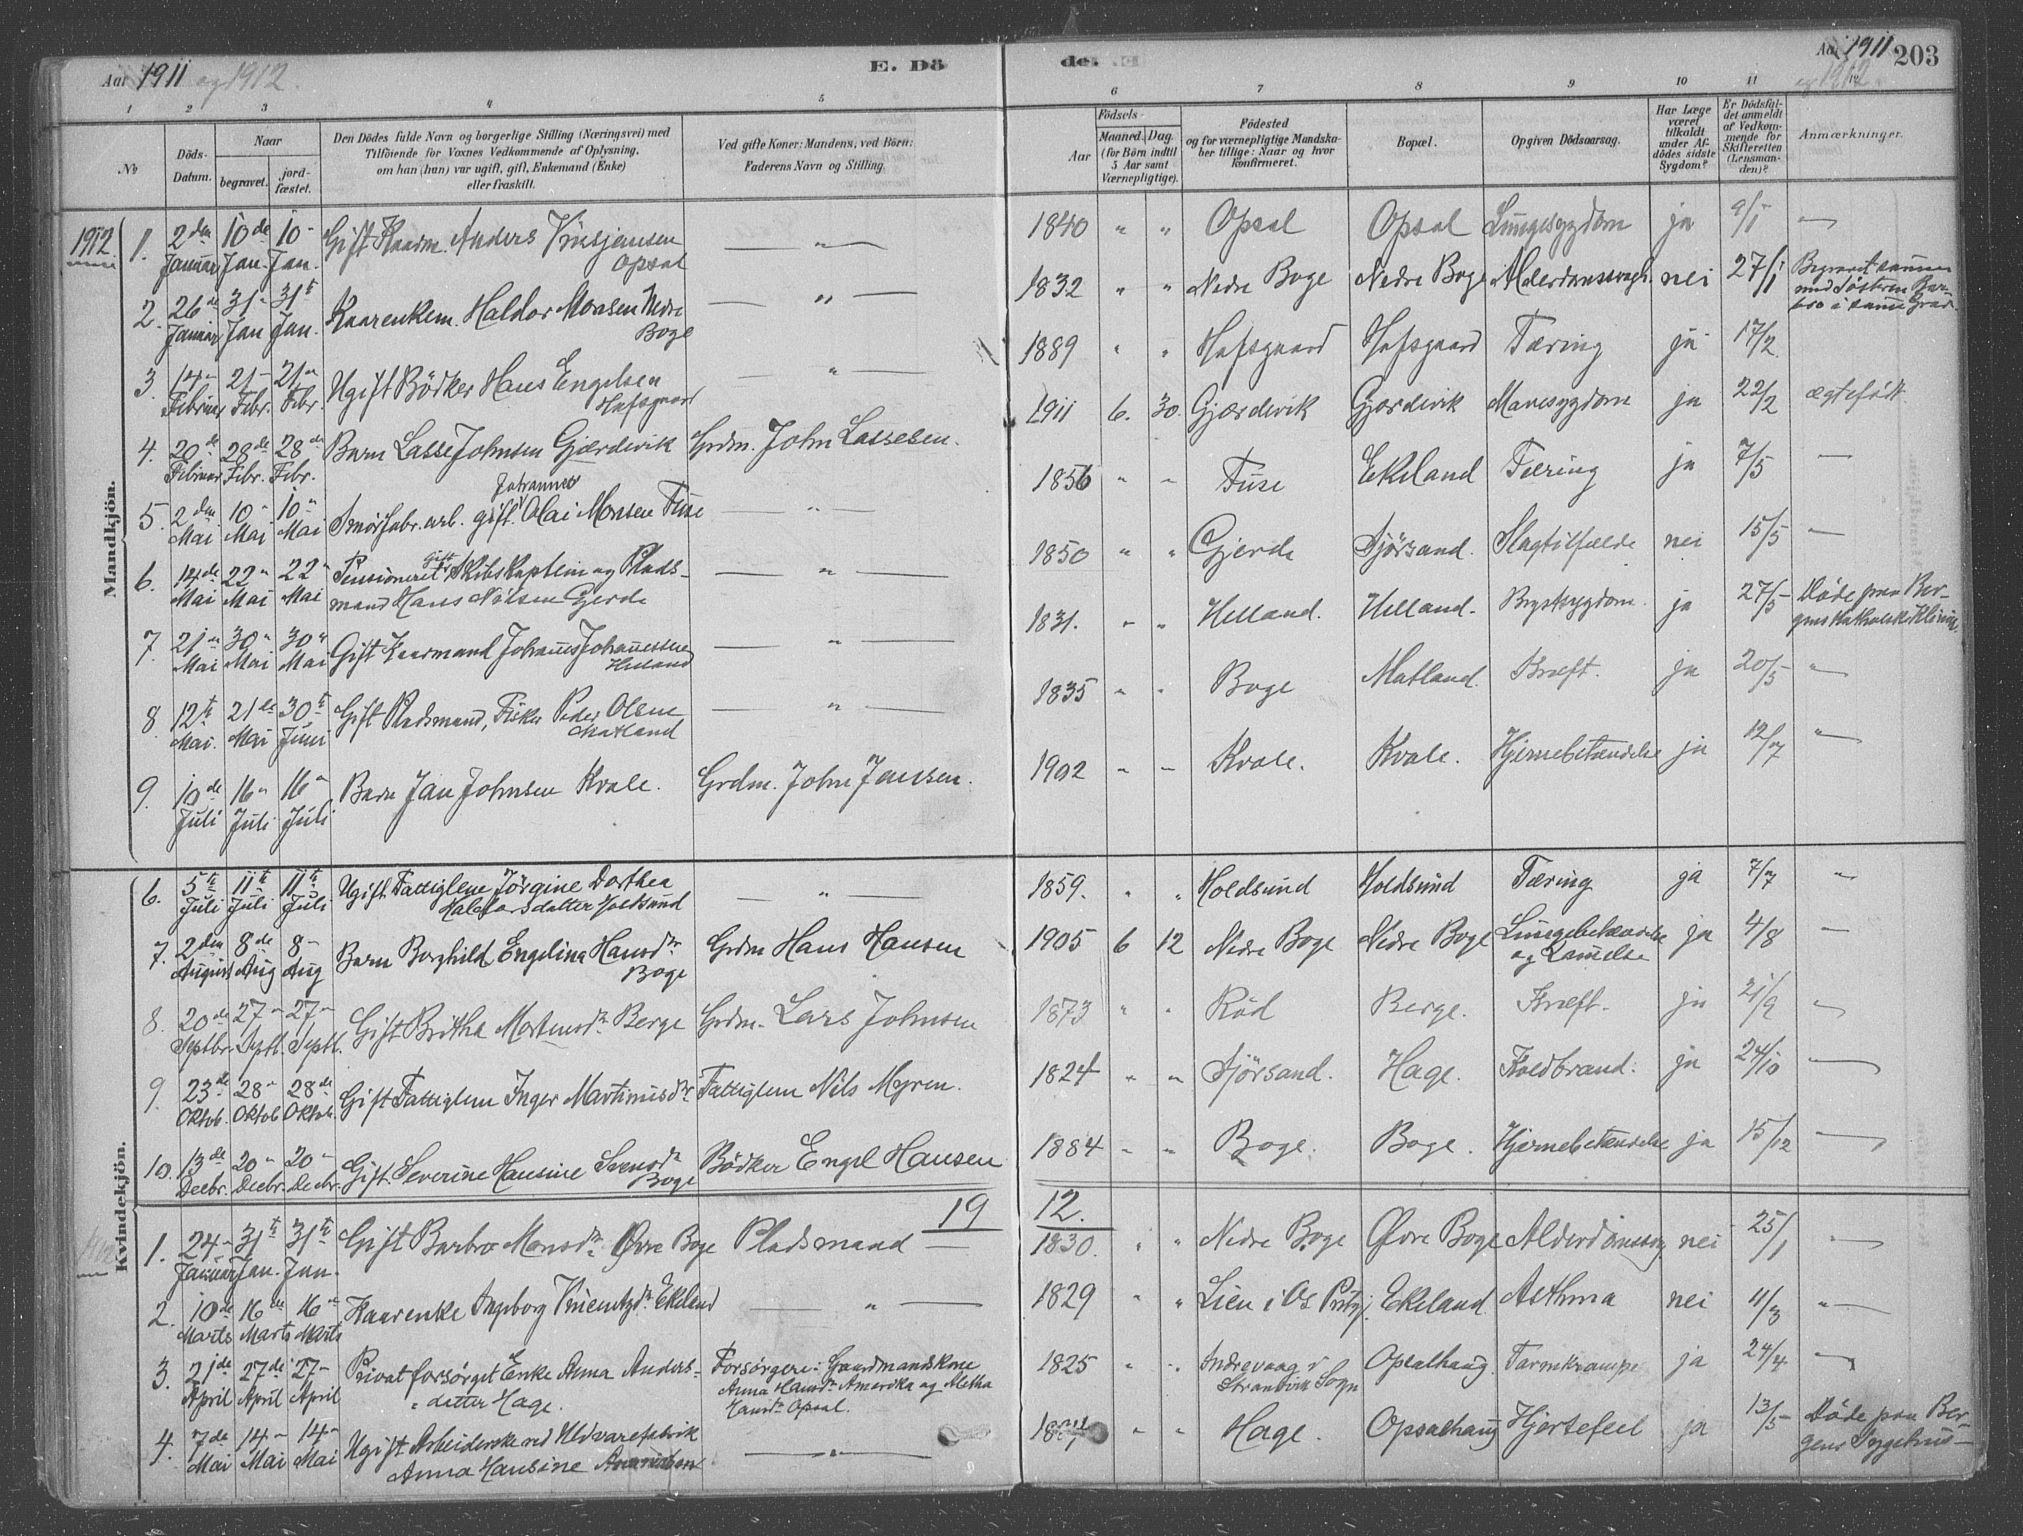 Aar 1911 og 1912.
E. Dö
de.
Aar 1911
og 1912.
203
1 2 3 4 5
6 7 8 9 10 11 12
No
Döds-Datum.
Naar
begravet.
jord-fæstet.
Den Dödes fulde Navn og borgerlige Stilling (Næringsvei) med
Tilföiende for Voxnes Vedkommende af Oplysning,
om han (hun) var ugift, gift, Enkemand (Enke)
eller fraskilt.
Ved gifte Koner: Mandens, ved Börn:
Faderens Navn og Stilling.
Födsels-
Aar
Maaned. Dag.
(for Börn indtil
5 Aar samt
Værnepligtige).
Födested
og for værnepligtige Mandska-
ber tillige: Naar og hvor
konfirmeret.
Bopæl.
Opgiven Dödsaarsag.
Har Læge
været
tilkaldt
under Af-
dödes sidste
Sygdom?
Er Dödsfal-
det anmeldt
af Vedkom-
mende for
Skifteretten
(Lensman-
den)?
Anmærkninger.
Mandkjön.
1912. 1. 2den Januar 10de Jan. 10- Jan. Gift Kaarm. Anders Vinsjansen Opsal — " — 1840 " " Opsal Opsal Lungesygdom ja 9/1 —
2. 26de Januar 31- Jan 31te Jan. Kaarenkem. Haldor Monsen Nedre Boge — " — 1832 " " Nedre Boge Nedre Boge Alderdomssvagh. nei 27/1 Begravet sammen med Söstren Barbro i samme Grav
3. 14- Februar 21- Febr. 21- Febr. Ugift Bödker Hans Engelsen Hafsgaard — " — 1889 " " Hafsgaard Hafsgaard Tæring ja 17/2
4. 20de Februar 28de Febr. 28de Febr. Barn Lasse Johnsen Gjærdevik Grdm. John Lassesen. 1911 6. 30. Gjærdevik Gjærdevik Mavesygdom ja 22/2 ægtefödt
5. 2den Mai 10- Mai 10- Mai Smörfabr. arb. gift. Johannes Olai Monsen Fuse — " — 1856 " " Fuse Ekeland Tæring ja 7/5 —
6. 14de Mai 22- Mai 22- Mai Pensioneret gift Skibskaptein og Pladsmand Hans Nilsen Gjerde — " — 1850 " " Gjerde Sjörsand. Slagtilfælde nei 15/5 —
7. 21- Mai 30- Mai 30- Mai Gift Kaarmand Johannes Johannessen Helland — " — 1831. " " Helland. Helland. Brystsygdom. ja 27/5 Döde paa Bergens Katholske Klinik.
8. 12te Mai. 21de Mai 30te Juni Gift Pladsmand, Fisker Peder Olsen Matland — " — 1835 " " Boge Matland. Kræft. ja 20/5 "
9. 10de Juli 16- Juli 16- Juli Barn Jan Johnsen Kvale. Grdm. John Jansen. 1902 " " Kvale. Kvale. Hjernebetændelse ja 12/7 "
Kvindekjön.
6. 5te Juli 11te Juli 11te Juli Ugift Fattiglem Jörgine Dorthea Haldorsdatter Holdsund — " — 1859. " " Holdsund Holdsund Tæring ja 7/7 "
7. 2den August 8de Aug 8- Aug Barn Borghild Engelina Hansdr Boge Grdm Hans Hansen 1905 6 12 Nedre Boge Nedre Boge Lungebetændelse og Lamelse ja 4/8 —
8. 20de Septbr. 27- Septb. 27- Septb. Gift Britha Mortensdr. Berge Grdm. Lars Johnsen 1873 " " Röd Berge. Kræft. ja 21/9 "
9. 23de Oktob. 28- Oktob 28de Oktob. Gift Fattiglem Inger Martinusdr Fattiglem Nils Myren. 1824 " " Sjörsand. Hage. Koldbrand. ja 24/10 —
10. 13de Decbr. 20- Decbr. 20- Decbr. Gift. Severine Hansine Svensdr Boge Bödker Engel Hansen 1884 " " Boge. Boge. Hjernebetændelse ja 15/12 —
19 12.
1. 24- Januar 31te Jan. 31te Jan. Gift Barbro Monsdr. Øvre Boge Pladsmand — 1830. " " Nedre Boge Øvre Boge Alderdomssvag nei 25/1 "
2. 10de Marts 16de Marts 16de Marts Kaarenke Ingeborg Ekeland — " — 1829 " " Lien i Os Prstgj. Ekeland. Asthma nei 11/3 "
3. 21de April 27de April 27- April Privat forsörget Enke Anna Andersdatter Hage. Forsörgere: Gaardmandskone Anna Hansdr. Amerika og Metha Hansdr. Opsal. 1825 " " Indrevaag i Strandvik Sogn Opsalhaug. Tarmkrampe ja 24/4 "
4. 7de Mai 14- Mai 14- Mai Ugift Arbeiderske ved Uldvarefabrik Anna Hansine — " — " " Hage. Opsalhaug Hjertefeil ja 13/5 Döde paa Bergens Sygehus —